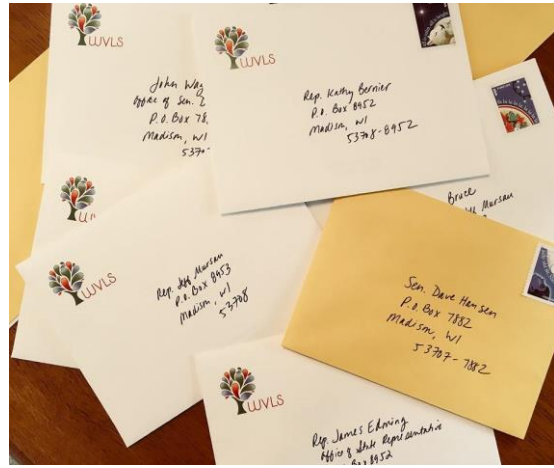 WVLS
John Way
Office of Sen.
P.O. Box 78
Madison, WI
5370
WVLS
Rep. Kathy Bernier
P.O. Box 8952
Madison, WI
53708-8952
Bruce
Mursau
WVLS
Rep. Jeff Mursau
P.O. Box 8953
Madison, WI
53708
Sen. Dave Hansen
P.O. Box 7882
Madison, WI
53707-7882
WVLS
Rep. James Edming
Office of State Representative
Box 8952